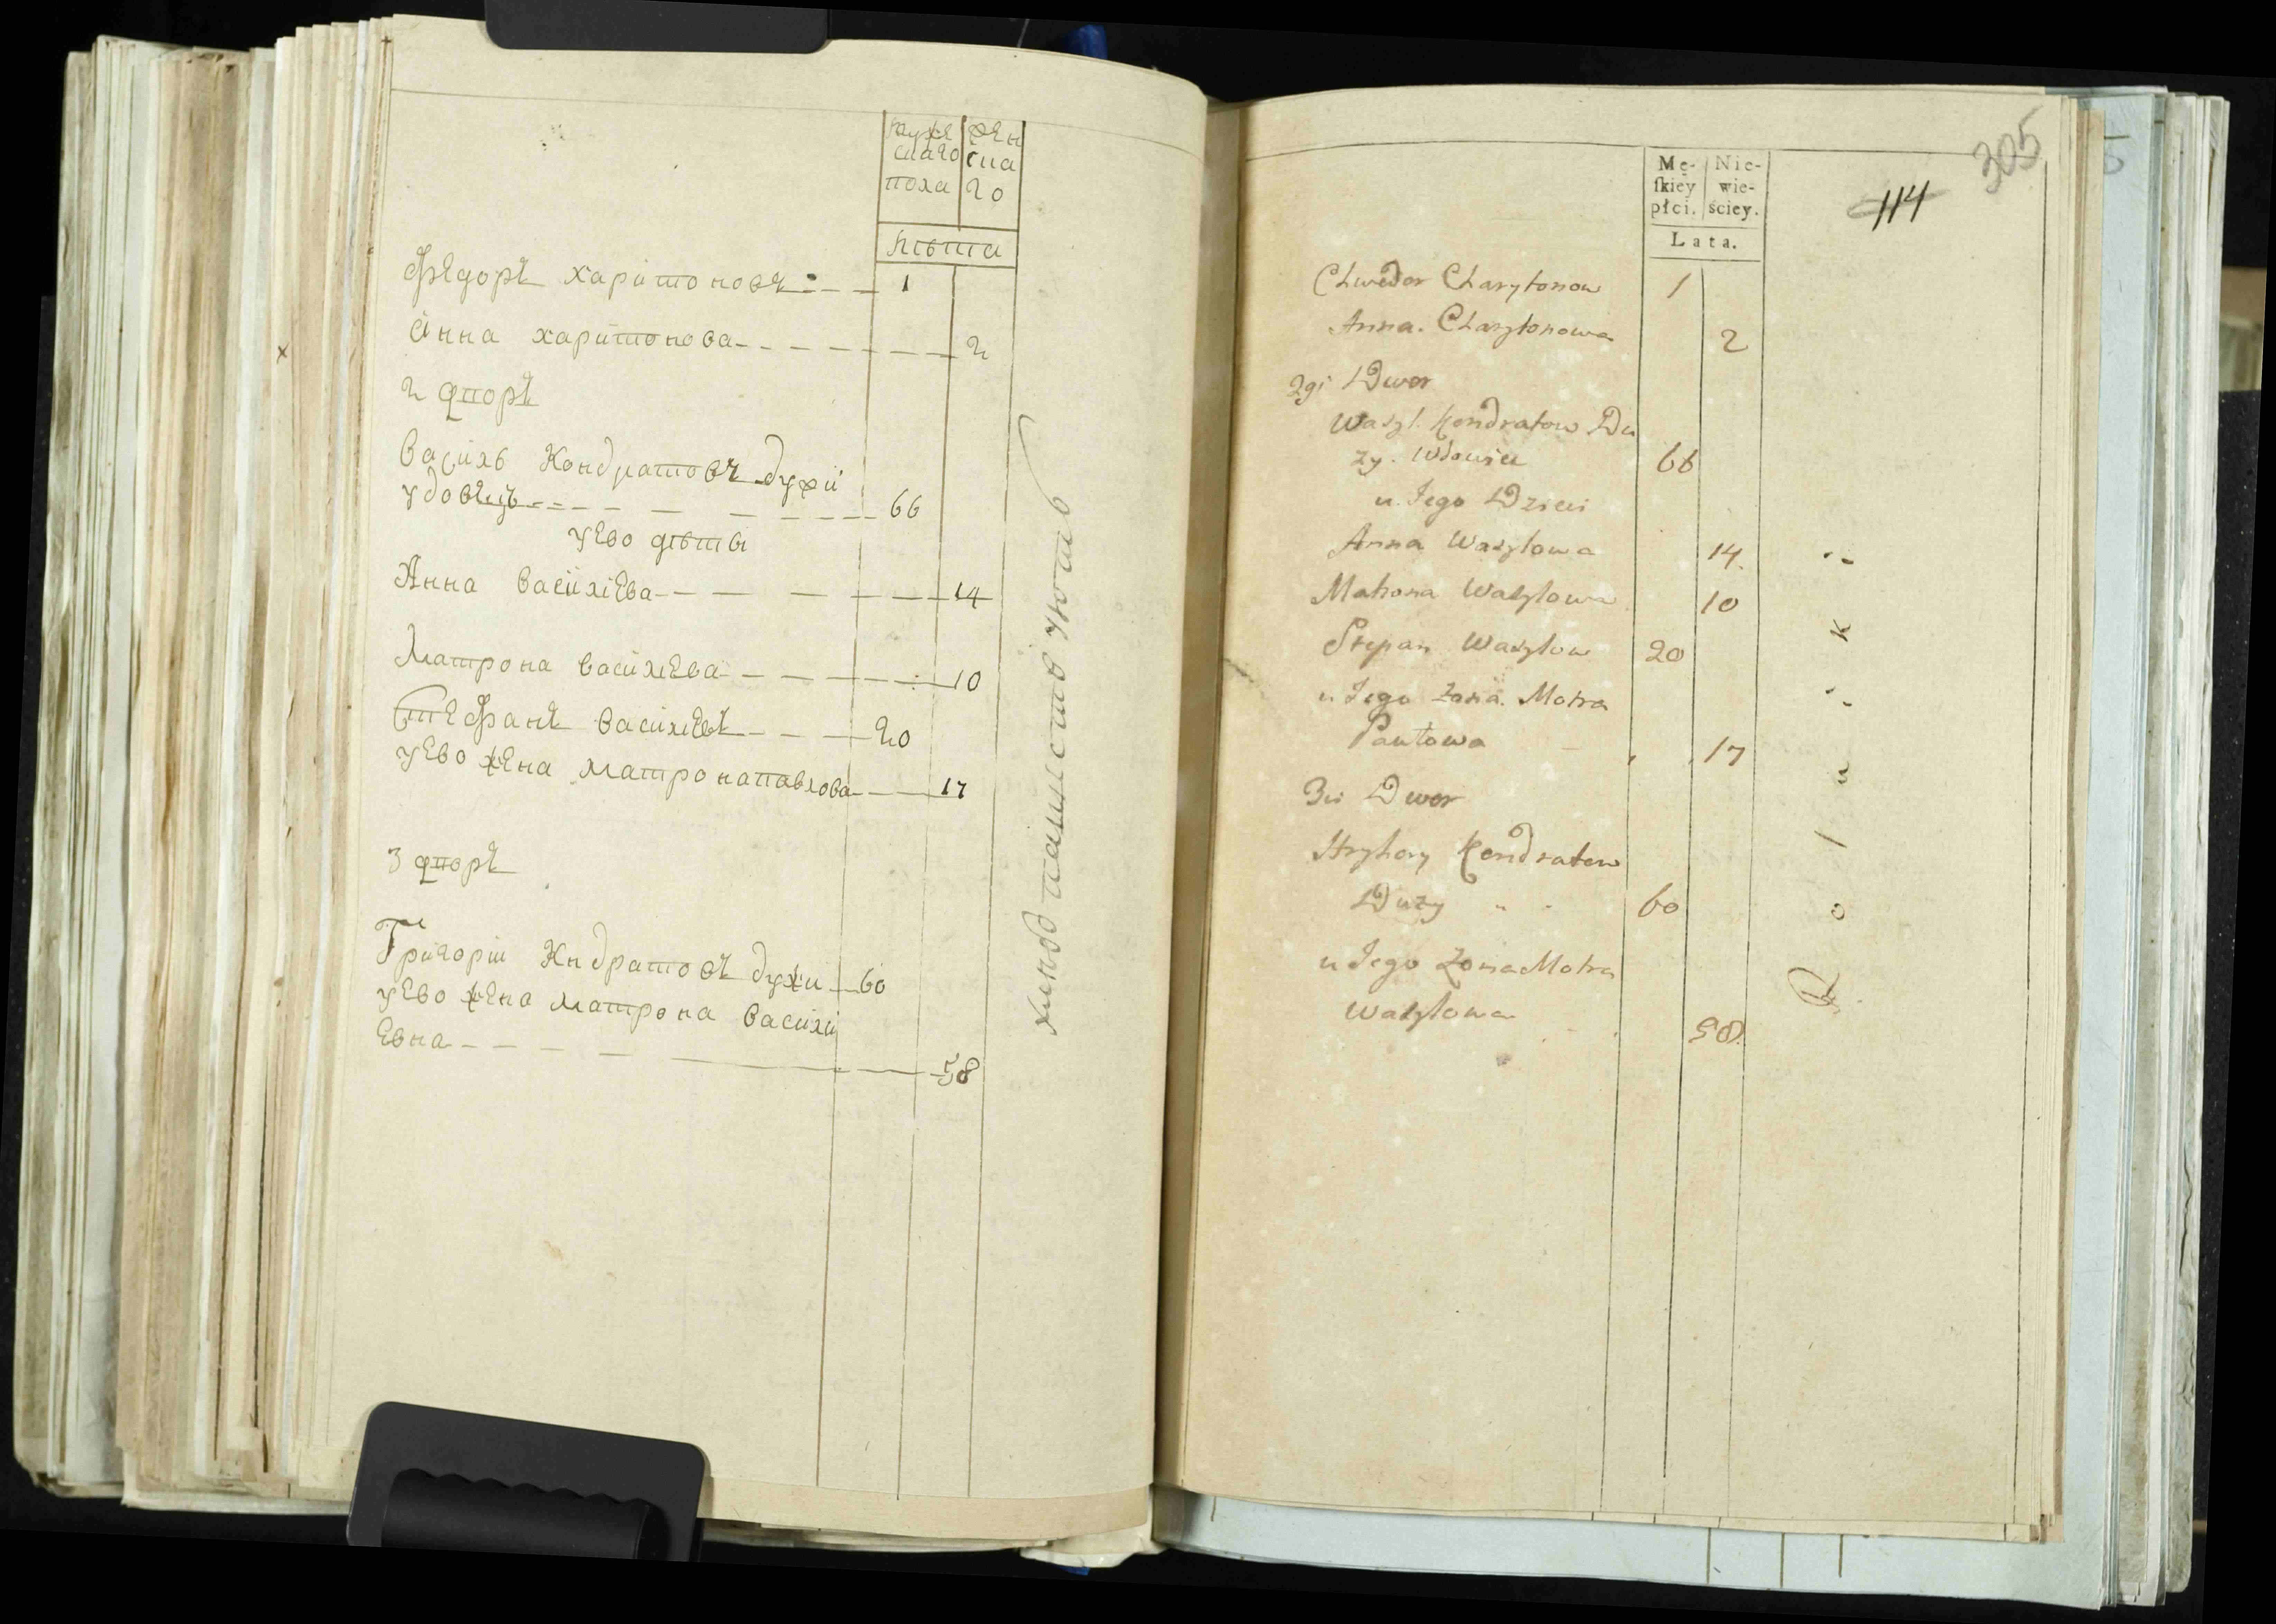 муже
скаго
пола
жен
ска
го
лѣта
Фѣдоръ харитоновъ 1
Анна харитонова 2
2 дворъ
Василь Кондратовъ дужіи
удовецъ 66
уево дѣти
Анна васіліева 14
Матрона василіева 10
Стефанъ василіевъ 20
уево жена матрона павлова 17
3 дворъ
Григоріи Кндратовъ дужи 60
уево жена матрона васили
евна 58
305
114
Mę-
ſkiey
płci.
Nie-
wie-
ściey.
Lata.
Chwedor Charytonow 1
Anna. Charytonowa 2
2gi Dwor
Wasyl. Kondratow Du
zy. Wdowiec 66
u Jego Dzieci
Anna Wasylowa 14.
Matrona Wasylowa 10
Stepan Wasylow 20
u Jego Zona. Motra
Pawłowa 17
3ci Dwor
Hryhory Kondratow
Duzy 60
u Jego Zona Motra
Wasylowa 58.